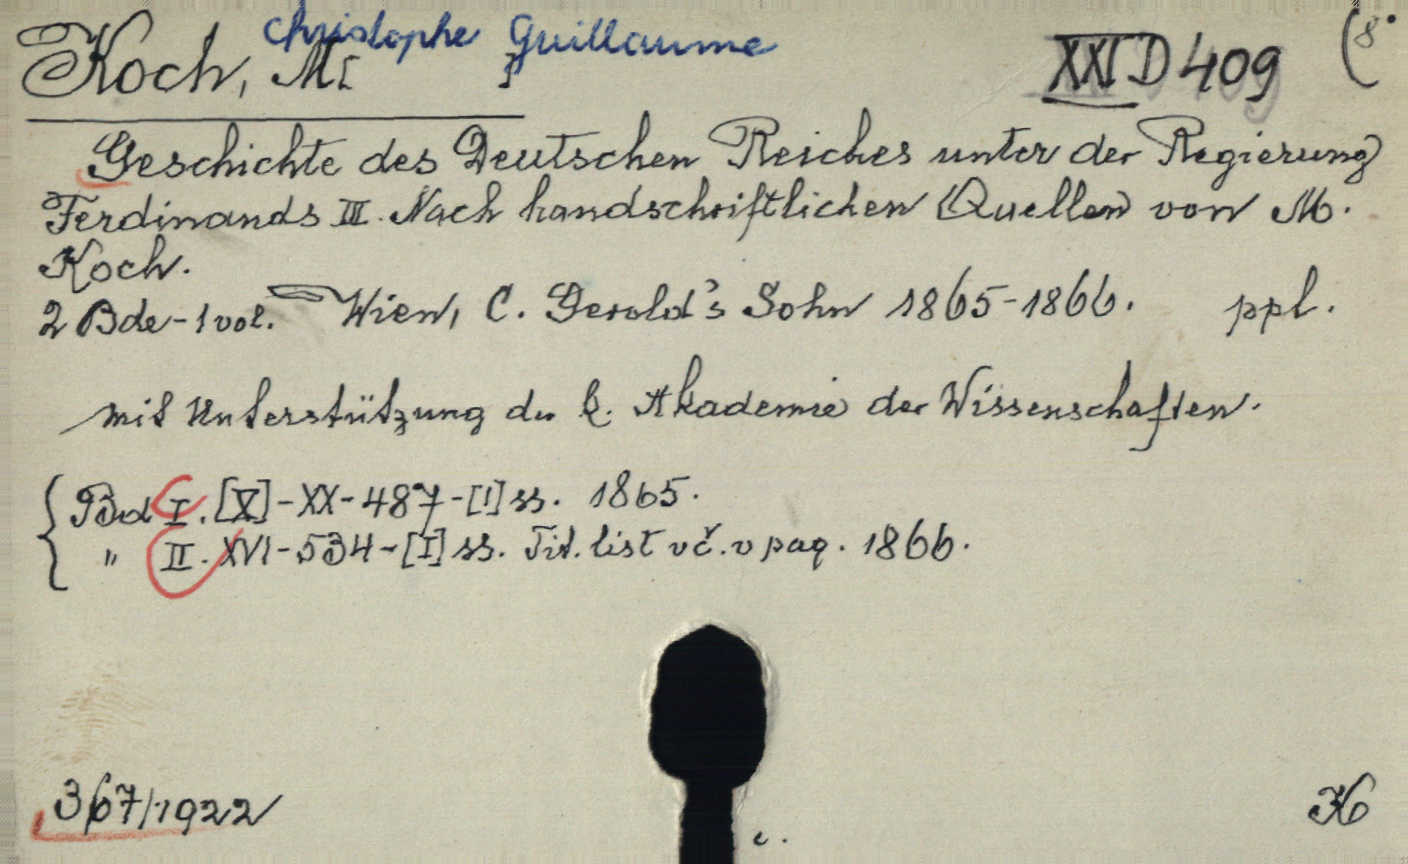 Christophe Guillaume
Koch, M[ ] XXI D 409 (8°
Geschichte des Deutschen Reiches unter der Regierung
Ferdinands III. Nach handschriftlichen Quellen von M.
Koch.
2 Bde - 1 vol. Wien, C. Gerold's Sohn 1865-1866. ppl.
Mit Unterstützung der k. Akademie der Wissenschaften.
Bd I. [X]-XX-487-[1] ss. 1865.
" II. XVI-534-[I] ss. Tit. list vč. v pag. 1866.
367/1922 K
c.